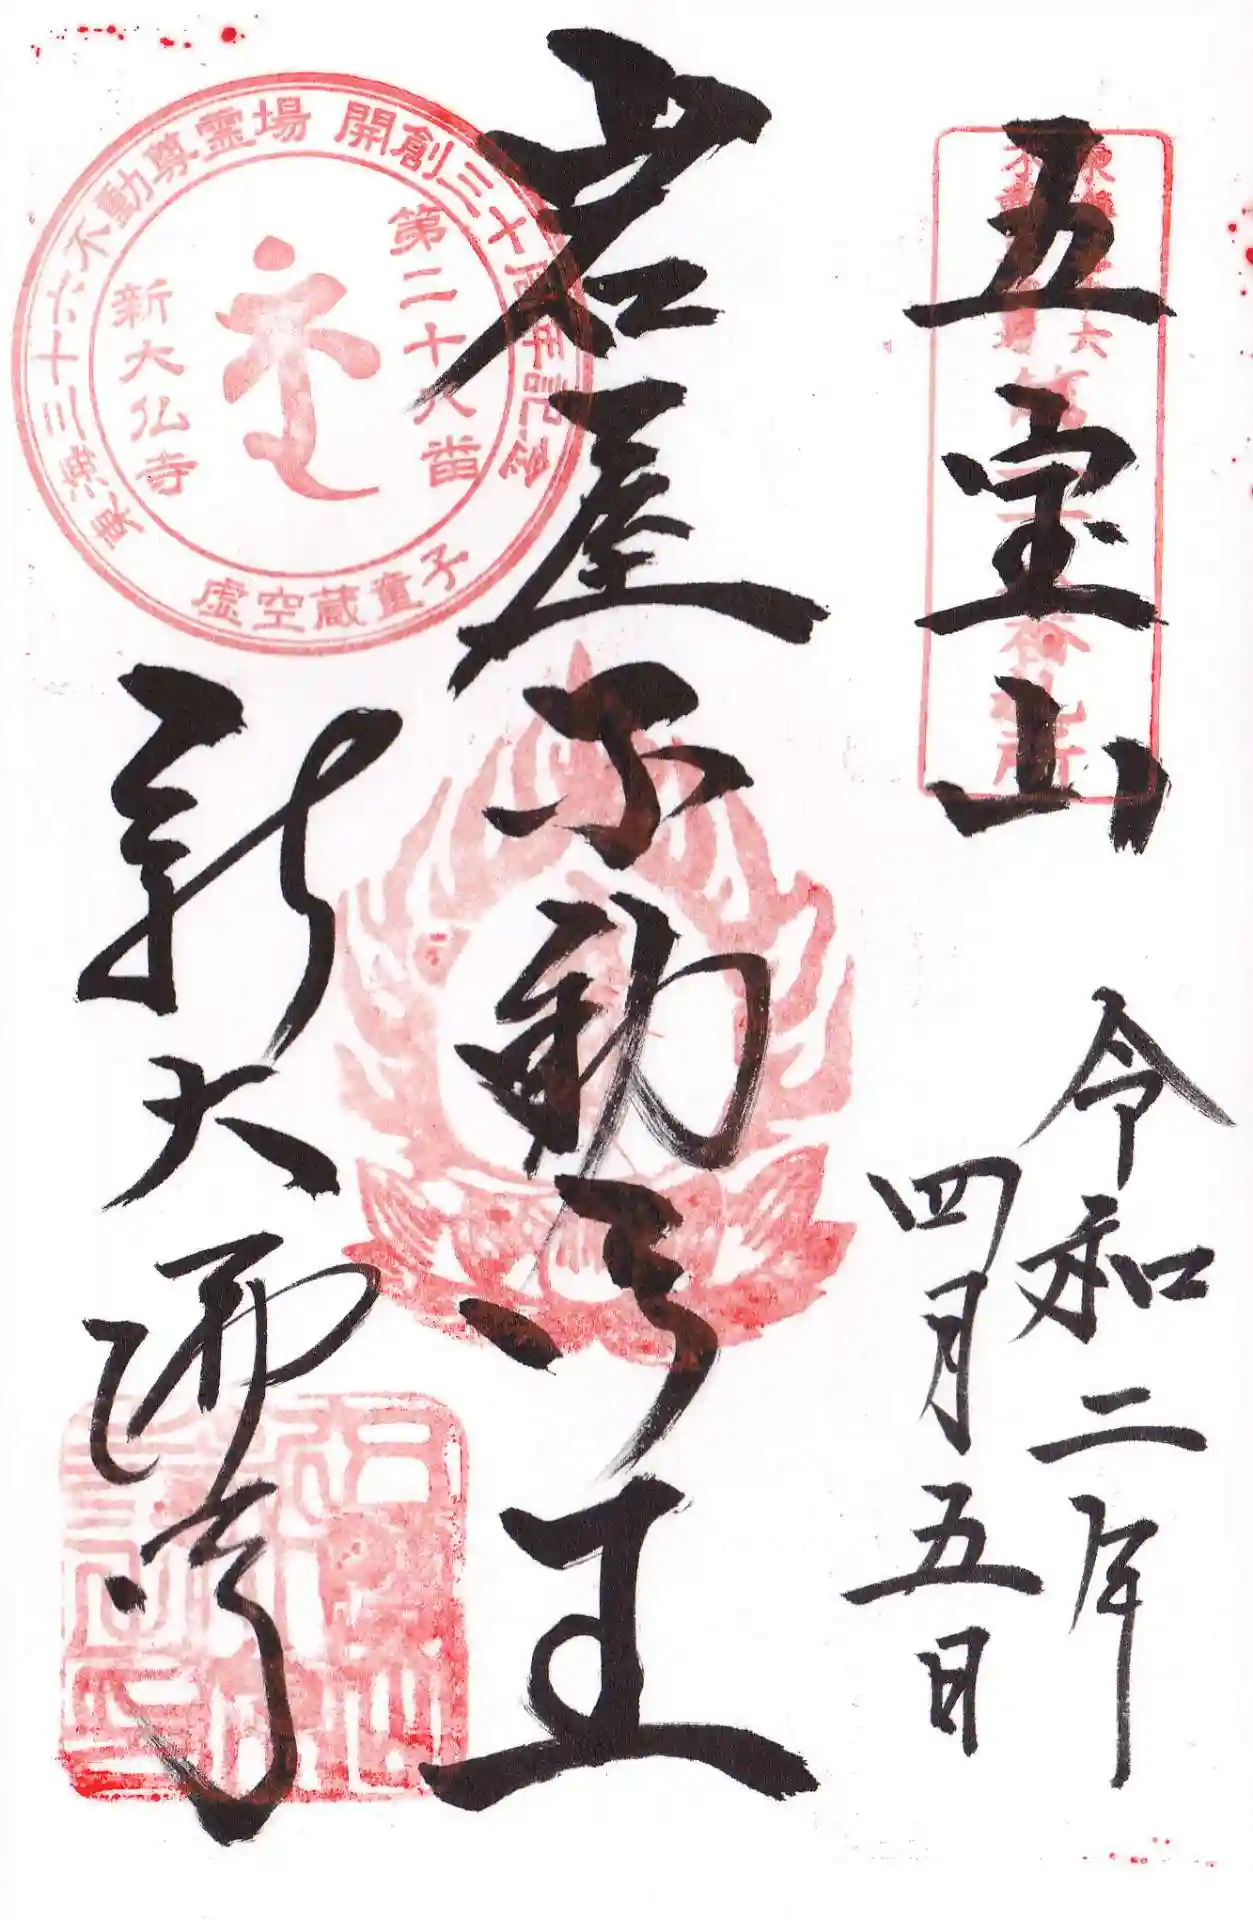 五宝山
令和二年
四月五日
岩屋不動明王
新大佛寺
東海三十六不動尊霊場 開創三十周年記念
第二十八番
新大仏寺
虚空蔵童子